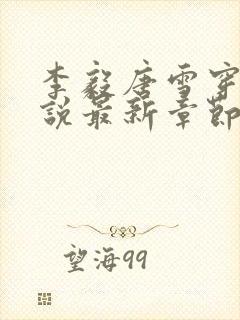 李毅唐雪穿
说最新章节
望海99